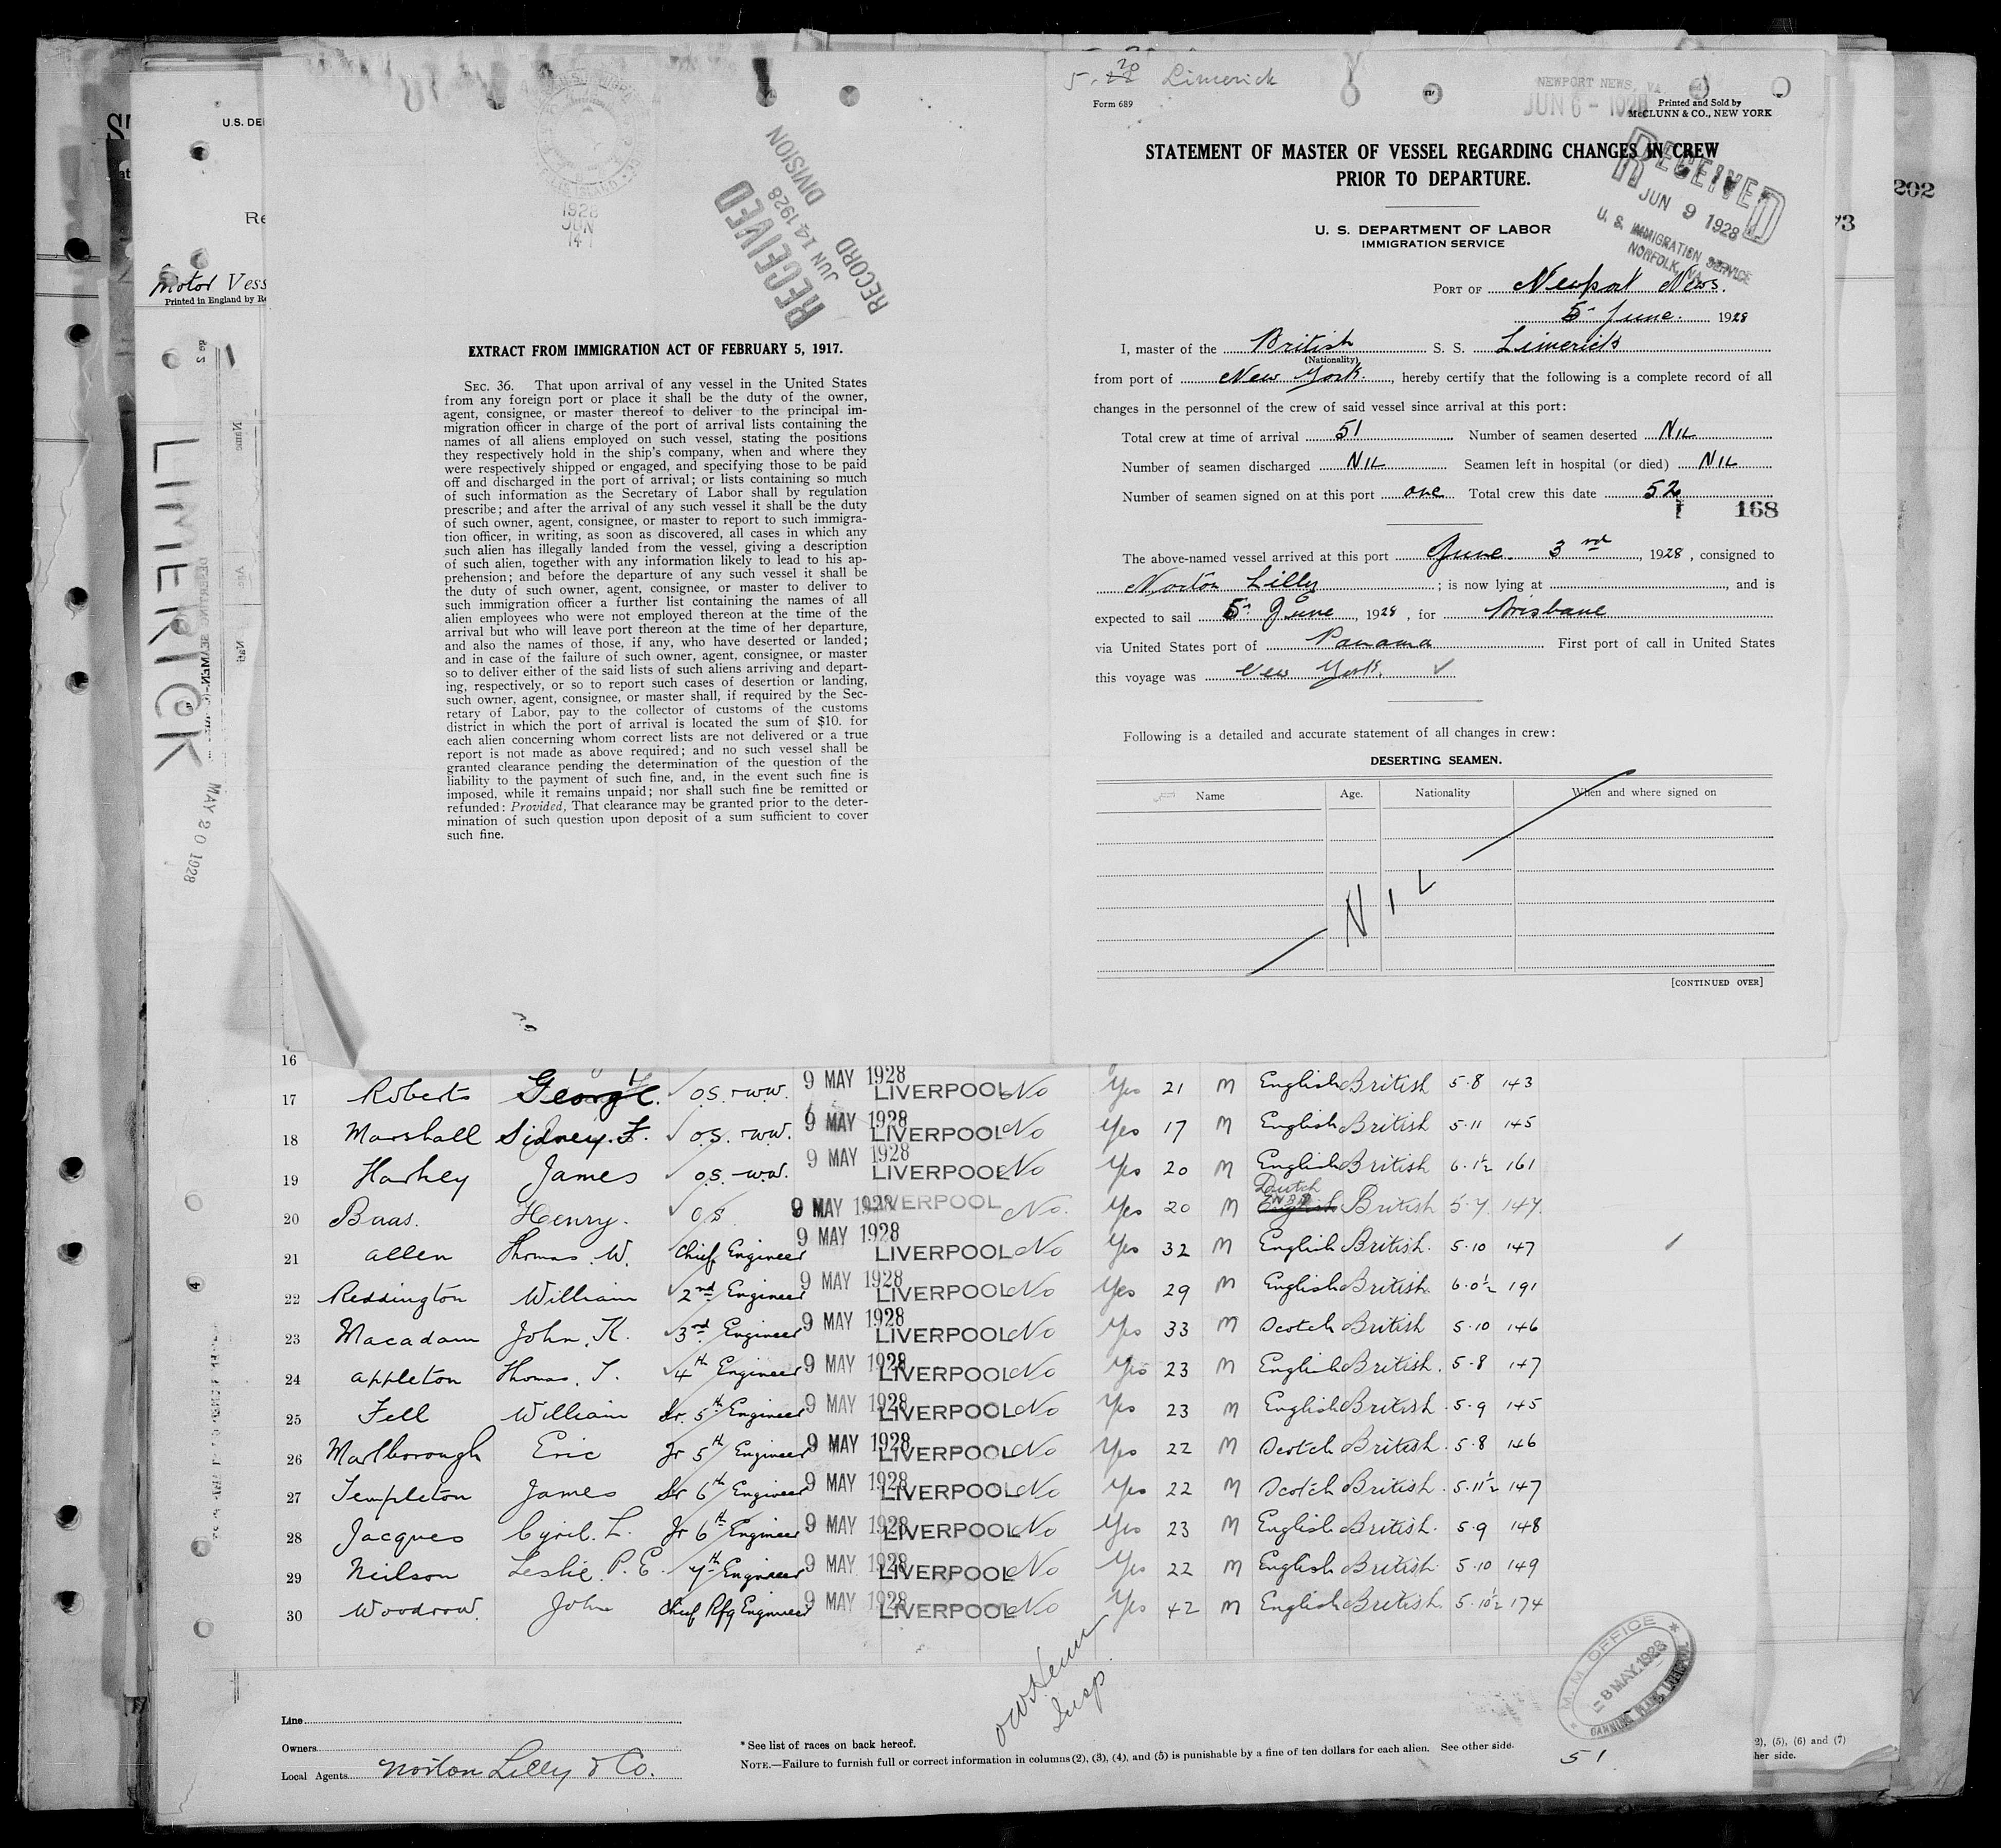 U.S. DE
Re
Motor Vess
Printed in England by R
LIMERICK
MAY 20 1928
202
73
1928
JUN
14
RECEIVED
JUN 14 1928
RECORD DIVISION
EXTRACT FROM IMMIGRATION ACT OF FEBRUARY 5, 1917.
SEC. 36. That upon arrival of any vessel in the United States
from any foreign port or place it shall be the duty of the owner,
agent, consignee, or master thereof to deliver to the principal im-
migration officer in charge of the port of arrival lists containing the
names of all aliens employed on such vessel, stating the positions
they respectively hold in the ship's company, when and where they
were respectively shipped or engaged, and specifying those to be paid
off and discharged in the port of arrival; or lists containing so much
of such information as the Secretary of Labor shall by regulation
prescribe; and after the arrival of any such vessel it shall be the duty
of such owner, agent, consignee, or master to report to such immigra-
tion officer, in writing, as soon as discovered, all cases in which any
such alien has illegally landed from the vessel, giving a description
of such alien, together with any information likely to lead to his ap-
prehension; and before the departure of any such vessel it shall be
the duty of such owner, agent, consignee, or master to deliver to
such immigration officer a further list containing the names of all
alien employees who were not employed thereon at the time of the
arrival but who will leave port thereon at the time of her departure,
and also the names of those, if any, who have deserted or landed;
and in case of the failure of such owner, agent, consignee, or master
so to deliver either of the said lists of such aliens arriving and depart-
ing, respectively, or so to report such cases of desertion or landing,
such owner, agent, consignee, or master shall, if required by the Sec-
retary of Labor, pay to the collector of customs of the customs
district in which the port of arrival is located the sum of $10. for
each alien concerning whom correct lists are not delivered or a true
report is not made as above required; and no such vessel shall be
granted clearance pending the determination of the question of the
liability to the payment of such fine, and, in the event such fine is
imposed, while it remains unpaid; nor shall such fine be remitted or
refunded: Provided, That clearance may be granted prior to the deter-
mination of such question upon deposit of a sum sufficient to cover
such fine.
5. 20 Limerick
NEWPORT NEWS, VA.
JUN 6 - 1928
Form 689
Printed and Sold by
McCLUNN & CO., NEW YORK
STATEMENT OF MASTER OF VESSEL REGARDING CHANGES IN CREW
PRIOR TO DEPARTURE.
RECEIVED
JUN 9 1928
U. S. IMMIGRATION SERVICE
NORFOLK, VA.
U. S. DEPARTMENT OF LABOR
IMMIGRATION SERVICE
PORT OF Newport News.
5 June. 1928
I, master of the British S. S. Limerick
(Nationality)
from port of New York. , hereby certify that the following is a complete record of all
changes in the personnel of the crew of said vessel since arrival at this port:
Total crew at time of arrival 51 Number of seamen deserted NIL
Number of seamen discharged NIL Seamen left in hospital (or died) NIL
Number of seamen signed on at this port one Total crew this date 52
168
The above-named vessel arrived at this port June 3rd , 1928 , consigned to
Norton Lilly ; is now lying at , and is
expected to sail 5 June , 1928 , for Brisbane
via United States port of Panama First port of call in United States
this voyage was New York. ✓
Following is a detailed and accurate statement of all changes in crew:
DESERTING SEAMEN.
Name Age. Nationality When and where signed on
NIL
[CONTINUED OVER]
16
17 Roberts George. ✓ O.S. - W.W. 9 MAY 1928 LIVERPOOL No Yes 21 M English British 5.8 143
18 Marshall Sidney. F. ✓ O.S. - W.W. 9 MAY 1928 LIVERPOOL No Yes 17 M English British 5.11 145
19 Harhey James ✓ O.S. - W.W. 9 MAY 1928 LIVERPOOL No Yes 20 M English British 6.1½ 161
20 Baas. Henry. ✓ O.S. 9 MAY 1928 LIVERPOOL No. Yes 20 M Dutch English British 5.7. 147.
21 Allen Thomas. W. Chief Engineer 9 MAY 1928 LIVERPOOL No Yes 32 M English British. 5.10 147
22 Reddington William ✓ 2nd Engineer 9 MAY 1928 LIVERPOOL No Yes 29 M English British 6.0½ 191
23 Macadam John. K. ✓ 3rd Engineer 9 MAY 1928 LIVERPOOL No Yes 33 M Scotch British 5.10 146
24 Appleton Thomas. T. ✓ 4th Engineer 9 MAY 1928 LIVERPOOL No Yes 23 M English British. 5.8 147
25 Fell William Sr. 5th Engineer 9 MAY 1928 LIVERPOOL No Yes 23 M English British. 5.9 145
26 Marlborough Eric Jr 5th Engineer 9 MAY 1928 LIVERPOOL No Yes 22 M Scotch British. 5.8 146
27 Templeton James Sr 6th Engineer 9 MAY 1928 LIVERPOOL No Yes 22 M Scotch British. 5.11½ 147
28 Jacques Cyril. L. Jr 6th Engineer 9 MAY 1928 LIVERPOOL No Yes 23 M English British. 5.9 148
29 Neilson Leslie. P. E. 7th Engineer 9 MAY 1928 LIVERPOOL No Yes 22 M English British. 5.10 149
30 Woodrow. John Chief Rfg Engineer 9 MAY 1928 LIVERPOOL No Yes 42 M English British. 5.10½ 174
Insp.
M. M. OFFICE
- 8 MAY. 1928
Line
Owners
Local Agents Norton Lilly & Co.
* See list of races on back hereof.
NOTE.—Failure to furnish full or correct information in columns (2), (3), (4), and (5) is punishable by a fine of ten dollars for each alien. See other side.
51
2), (5), (6) and (7)
her side.